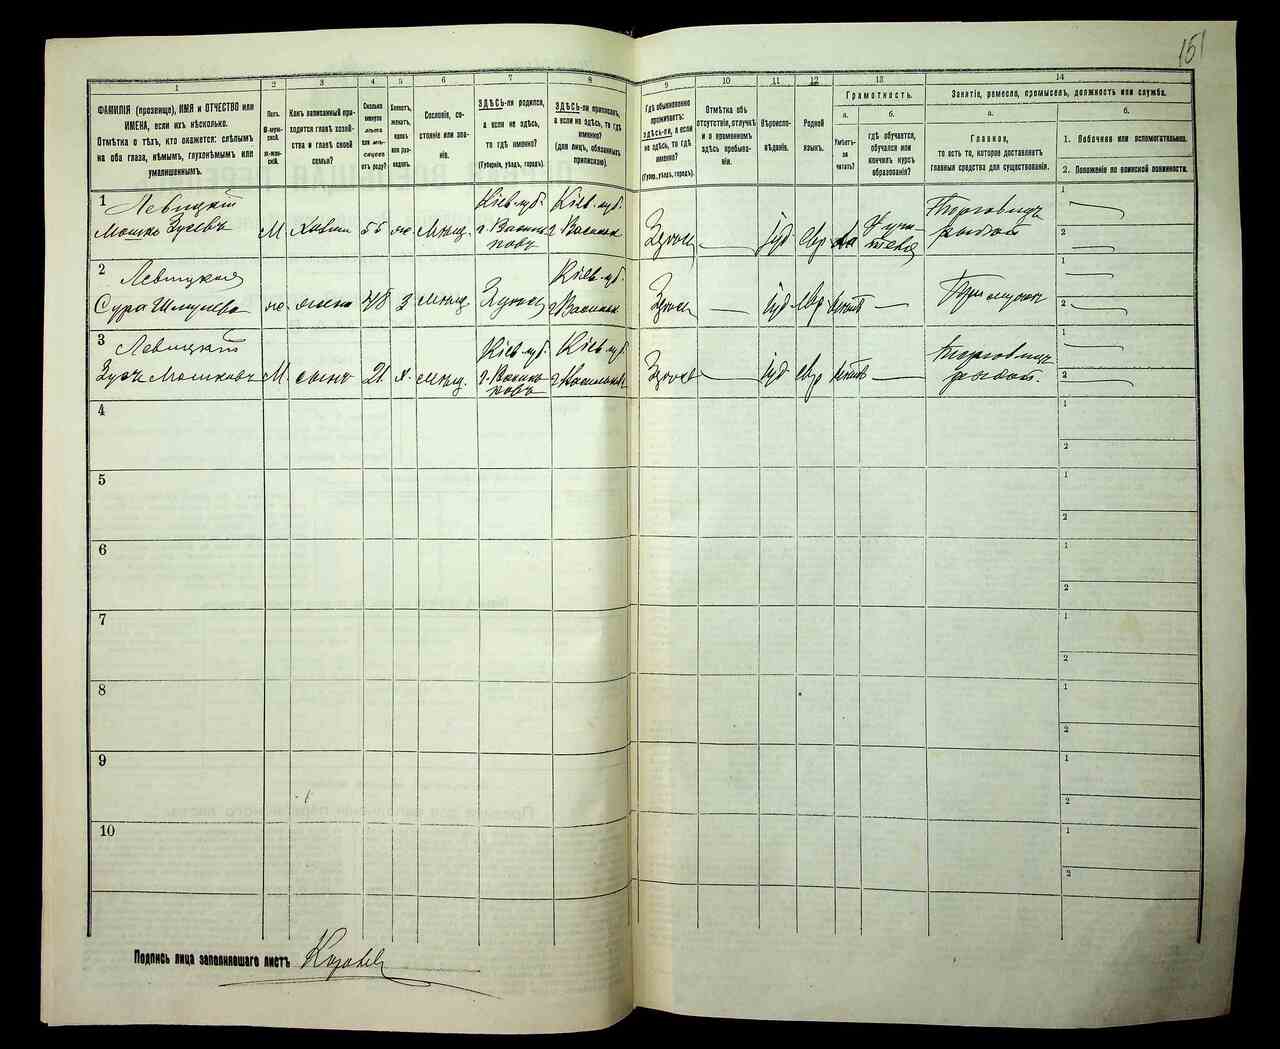 151
1
2
3
4
5
6
7
8
9
10
11
12
13
14
ФАМИЛІЯ (прозвище), ИМЯ и ОТЧЕСТВО или
ИМЕНА, если ихъ нѣсколько.
Отмѣтка о тѣхъ, кто окажется: слѣпымъ
на оба глаза, нѣмымъ, глухонѣмымъ или
умалишеннымъ.
Полъ.
Какъ записанный при-
ходится главѣ хозяй-
ства и главѣ своей
семьи?
Сколько
минуло
лѣтъ
или мѣ-
сяцевъ
отъ роду?
Холостъ,
женатъ,
вдовъ
или раз-
веденъ.
Сословіе, со-
стояніе или зва-
ніе.
ЗДѢСЬ-ли родился,
а если не здѣсь,
то гдѣ именно?
(Губернія, уѣздъ, городъ).
ЗДѢСЬ-ли приписанъ,
а если не здѣсь, то гдѣ
именно?
(для лицъ, обязанныхъ
припискою).
Гдѣ обыкновенно
проживаетъ:
здѣсь-ли, а если
не здѣсь, то гдѣ
именно?
(Губер., уѣздъ, городъ).
Отмѣтка объ
отсутствіи, отлучкѣ
и о временномъ
здѣсь пребыва-
ніи.
Вѣроиспо-
вѣданіе.
Родной
языкъ.
Грамотность.
а.
Умѣетъ-
ли
читать?
б.
гдѣ обучается,
обучался или
кончилъ курсъ
образованія?
Занятіе, ремесло, промыселъ, должность или служба.
а.
Главное,
то есть то, которое доставляетъ
главныя средства для существованія.
б.
1. Побочное или вспомогательное.
2. Положеніе по воинской повинности.
1
Левицкій
Мошко Зусевъ
М
Хозяин
55
же
Мѣщ.
Кіев. губ.
г. Василь
ковъ
Кіев. губ.
г Васильк
Здѣсь
—
Іуд
Евр
да
Торговецъ
рыбой
1
2
2
Левицкая
Сура Шмулева
же.
жена
48
З
мѣщ
Здѣсь
Кіев. губ.
г Васильк
Здѣсь
—
Іуд
Евр
нѣтъ
—
При мужѣ
1
2
3
Левицкій
Зусь Мошковъ
М.
сынъ
21.
х.
мѣщ.
Кіев губ.
г. Василь
ковъ
Кіев. губ.
г Васильковъ
Здѣсь
—
Іуд
Евр
нѣтъ
—
Торговецъ
рыбой.
1
2
4
1
2
5
1
2
6
1
2
7
1
2
8
1
2
9
1
2
10
1
2
Подпись лица заполнявшаго листъ